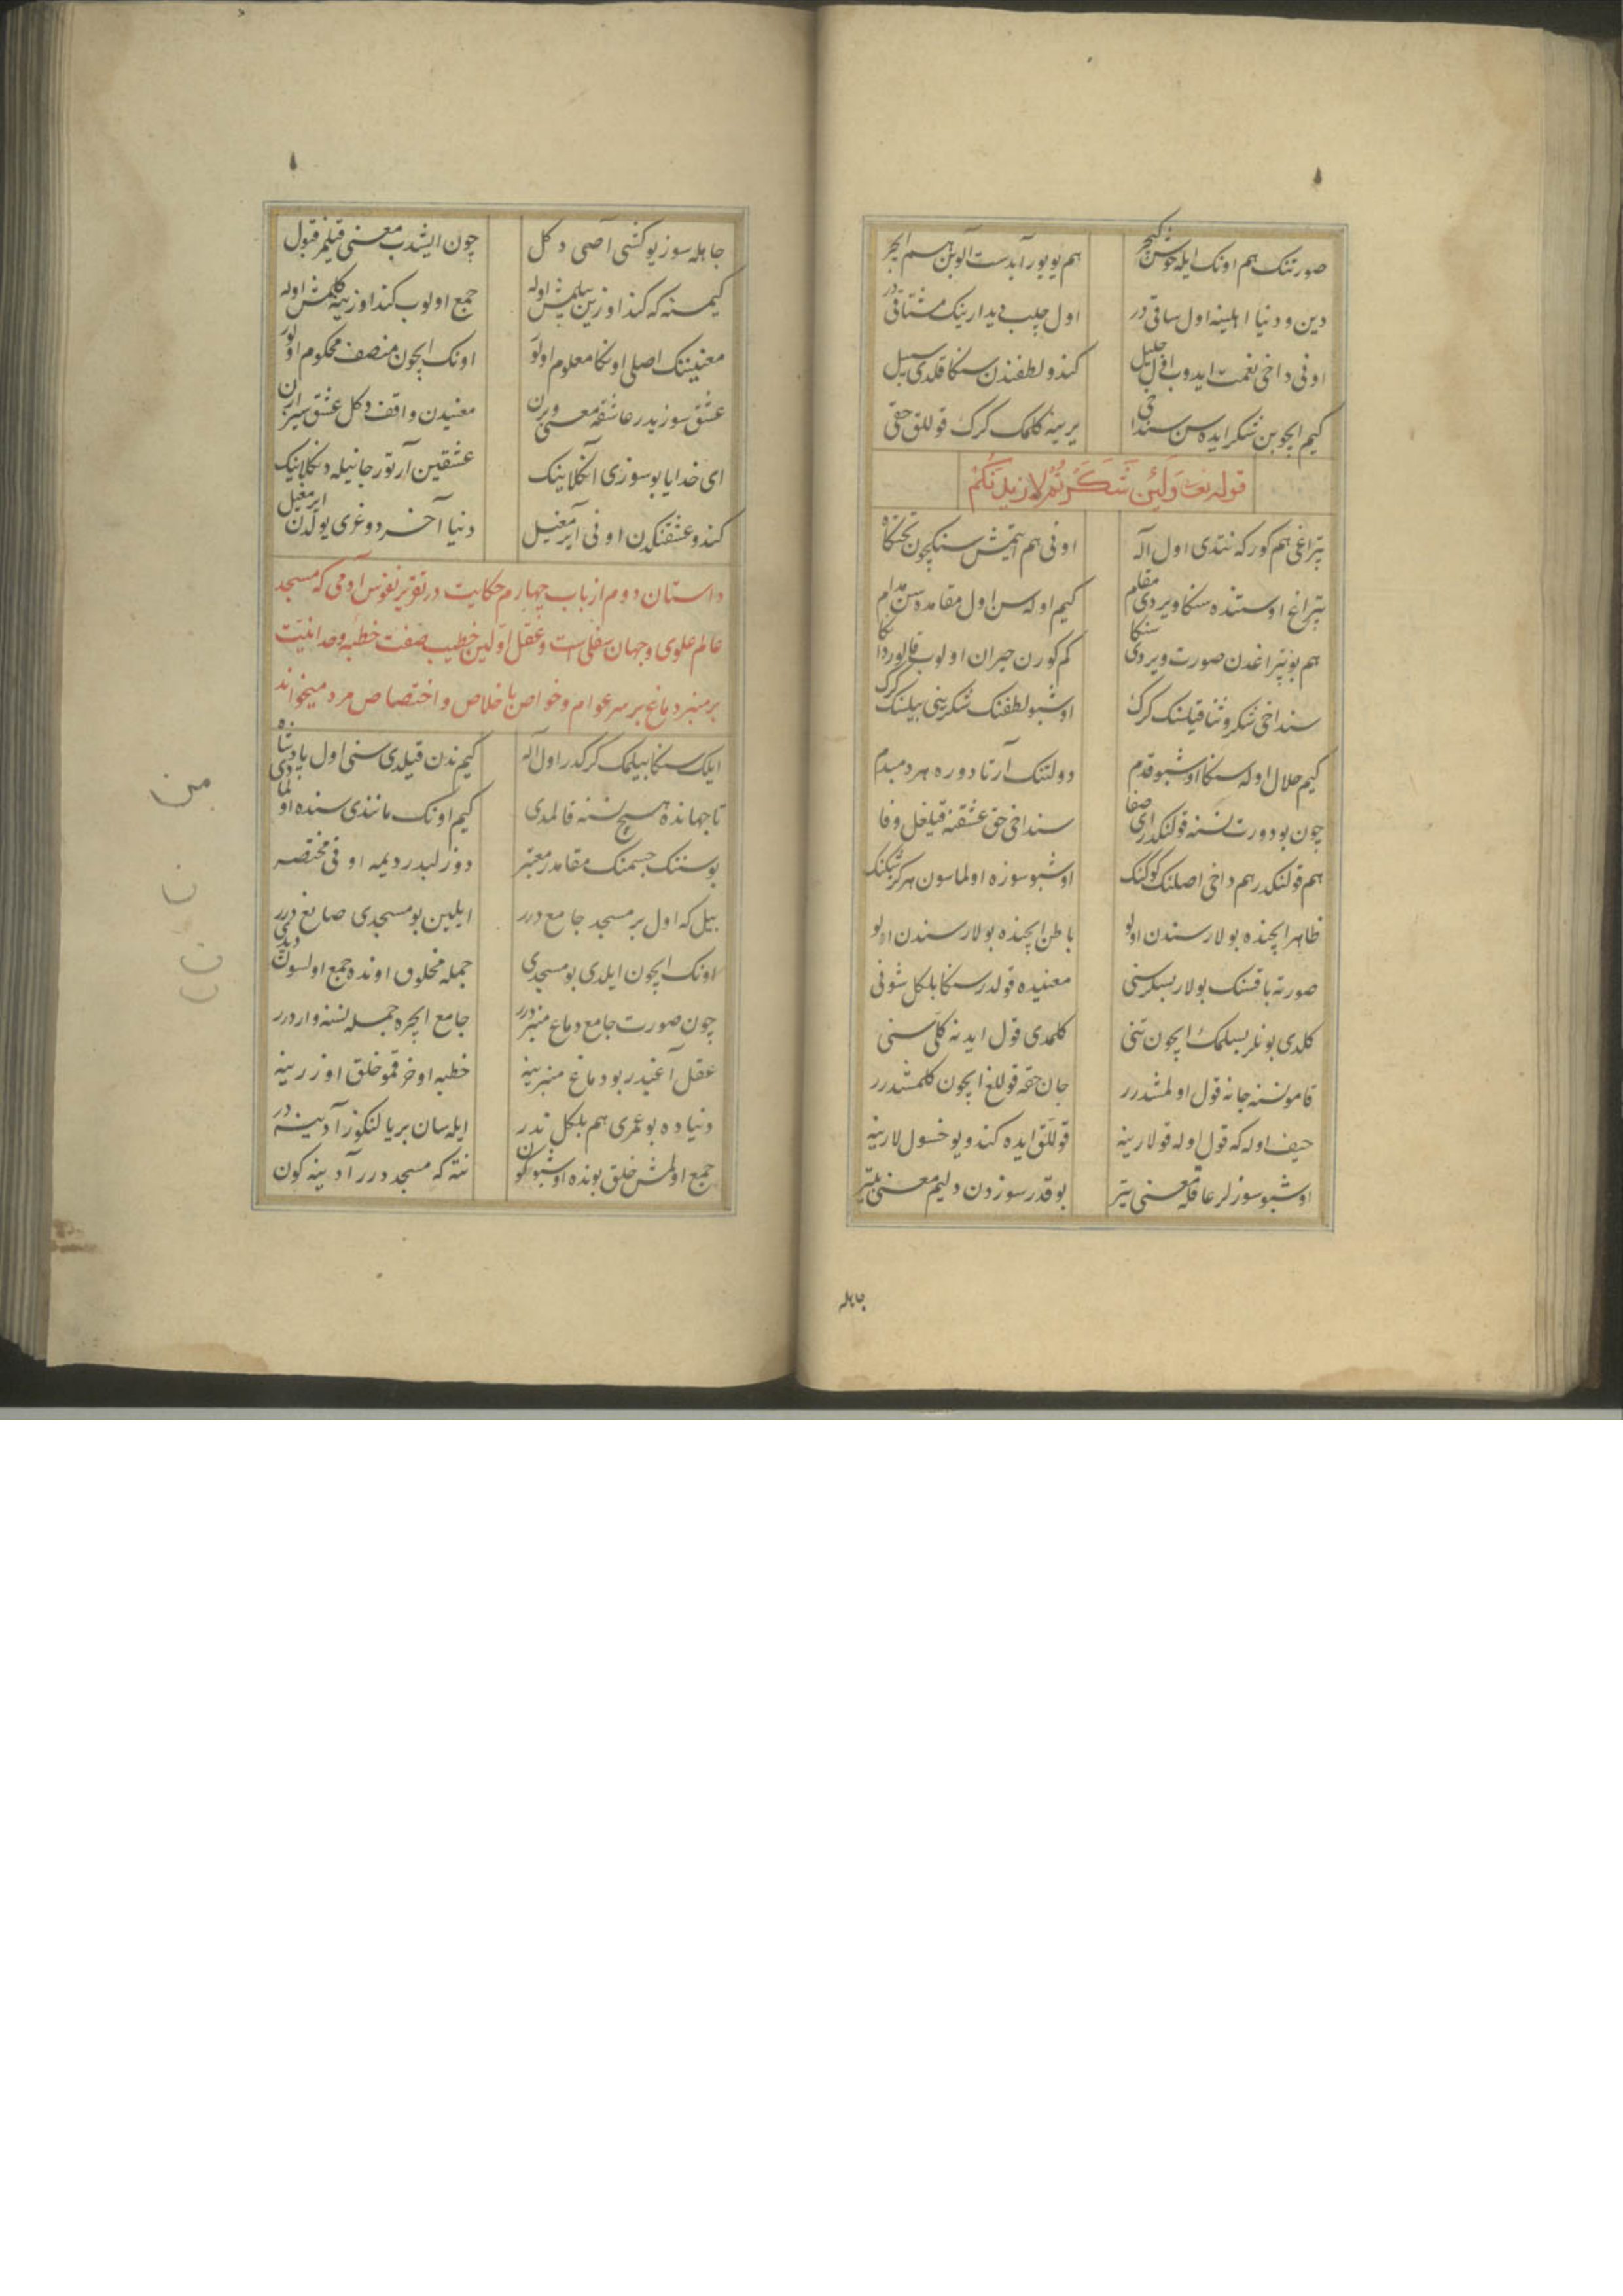 صورتنک هم اونک ایله خوش کیچر هم یویور آبدست آلوبن هم ایچر
دین و دنیا اهلینه اول ساقی در اول چلب دیدارینک مشتاقی در
اونی داخی نعمت ایدوب اول جلیل کندو لطفندن سنکا قلدی سبیل
کیم ایچوبن شکر ایده سن سنداخی یرینه کلمک کرک قوللق حقی
قوله تعالی وَلَئِن شَكَرْتُمْ لَازِيدَنَّكُمْ
پتراغی هم کورکه نتدی اول آله اونی هم ایتمش سنکچون تختکاه
پتراغ اوستنده سنکا ویردی مقام کیم اوله سن اول مقامده سن مدام
هم بو پتراغدن صورت ویردی سنکا کم کورن حیران اولوب قالور دانکا
سنداخی شکر و ثنا قیلسنک کرک اوشبو لطفنک شکرینی بیلسنک کرک
کیم حلال اوله سنکا اوشبو قدم دولتنک آرتا دوره هر دمبدم
چون بو دورت نسنه قولنکدر ای صفا سنداخی حق عشقنه قیلغل وفا
هم قولنکدر هم داخی اصلنک کوکنک اوشبو سوزه اولماسون هرکز شکنک
ظاهر ایچنده بولار سندن اولو باطن ایچنده بولار سندن
صورته باقسنک بولار بسلر سنی معنیده قولدر سنکا بلکل شونی
کلدی بونلر بسلمک ایچون تنی کلمدی قول ایدنه کلی سنی
قامو نسنه جانه قول اولمشدرر جان حقه قوللغ ایچون کلمشدرر
حیف اوله که قول اوله قولارینه قوللق ایده کندو یوخسول لارینه
اوشبو سوزلر عاقله معنی یتر بو قدر سوزدن دلیم معنی بیتر
جاهله
جاهله سوز یو کشی آصی دکل چون ایشدب معنی قیلمز قبول
کیمسنه که کند اوزین بیلمش اوله جمع اولوب کند اوزینه کلمش اوله
معنیننک اصلی اونکا معلوم اولور اونک ایچون منصف محکوم اولور
عشق سوزیدر عاشقه معنی ویرن معنیدن واقف دکل عشق سیز ارن
ای خدایا بو سوزی انکلاینک عشقین آرتور جانیله دنکلاینک
کندو عشقنکدن اونی آیرمغیل دنیا آخر دوغری یولدن ایرمغیل
داستان دوم از باب چهارم حکایت در تقریر نفوس آدمی که مسجد
عالم علوی و جهان سفلی است و عقل اولین خطیب صفت خطبه وحدانیت
بر منبر دماغ بر سر عوام و خواص با خلاص و اختصاص مرد میخواند
ایلک سنکا بیلمک کرکدر اول آله کیم ندن قیلدی سنی اول پادشاه
تا جهانده هیچ نسنه قالمدی کیم اونک مانندی سنده اولمادی
بو سننک جسمنک مقامدر معتبر دوزلبدر دیمه اونی مختصر
بیل که اول بر مسجد جامع درر ایلین بو مسجدی صانع درر
اونک ایچون ایلدی بو مسجدی جمله مخلوق اونده جمع اولسون دیدی
چون صورت جامع دماغ منبر درر جامع ایچره جمله نسنه وار درر
عقل آغیدر بو دماغ منبرینه خطبه اوخر قمو خلق اوزرینه
دنیاده بو عمری هم بلکل ندر ایله سان بر یالنکوز آدینه در
جمع اولمش خلق بونده اوشبو کون نته که مسجد درر آدینه کون
من
ن
ن